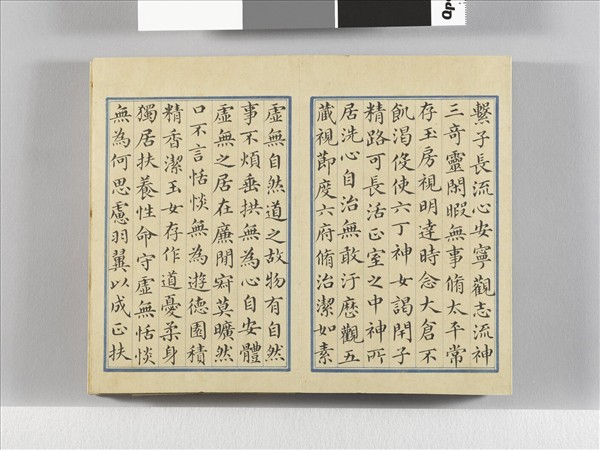 繫子長流心安寧觀志流神
三奇靈閒暇無事脩太平常
存玉房視明達時念大倉不
飢渴伇使六丁神女謁閉子
精路可長活正室之中神所
居洗心自治無敢汙歷觀五
藏視節度六府脩治潔如素
虛無自然道之故物有自然
事不煩垂拱無為心自安體
虛無之居在廉間寂莫曠然
口不言恬惔無為遊德園積
精香潔玉女存作道憂柔身
獨居扶養性命守虛無恬惔
無為何思慮羽翼以成正扶